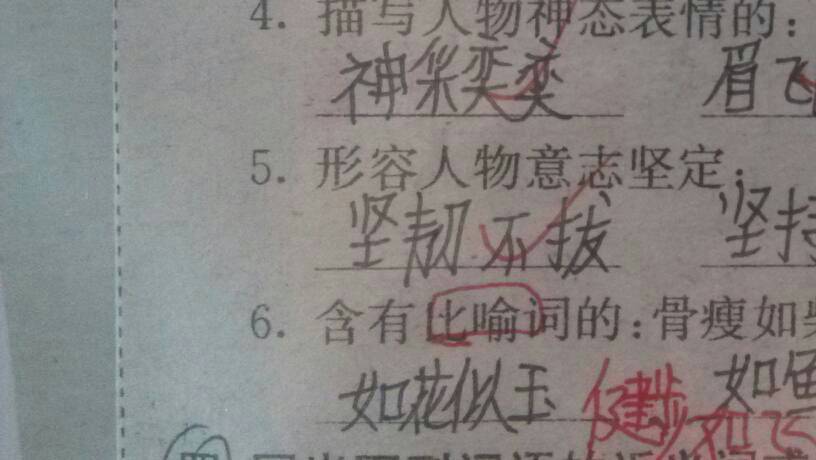 4. 描写人物神态表情的:
神采奕奕 眉飞
5. 形容人物意志坚定:
坚韧不拔 坚持
6. 含有比喻词的:骨瘦如柴
如花似玉 健步如飞 如鱼